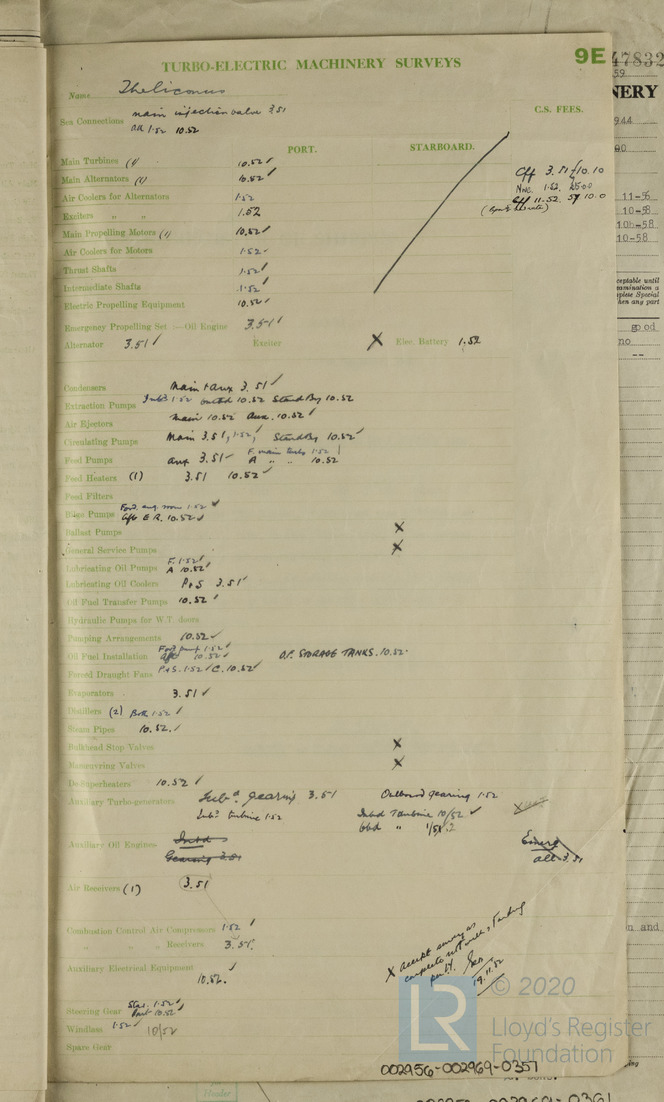 9E
47832
TURBO-ELECTRIC MACHINERY SURVEYS
59
NERY
Name Theliconus
main injection valve 3.51
C.S. FEES.
Sea Connections all 1.52 10.52
944
PORT. STARBOARD.
Main Turbines (1) 10.52 ✓
Cff 3.51 £10.10
Main Alternators (1) 10.52 ✓
Nwc. 1.52 £500
Air Coolers for Alternators 1.52
11-56
Cff 11.52 £9 10.0
Exciters " " 1.52
10-58
Main Propelling Motors (1) 10.52 ✓
10b-58
Air Coolers for Motors 1.52 ✓
10-58
Thrust Shafts 1.52 ✓
Intermediate Shafts 1.52 ✓
Electric Propelling Equipment 10.52 ✓
Emergency Propelling Set :—Oil Engine 3.51 ✓
good
Alternator 3.51 ✓ Exciter X Elec. Battery 1.52
no
--
Condensers Main + aux 3.51 ✓
Extraction Pumps Inbd 1.52 outbd 10.52 Stand By 10.52
Air Ejectors Main 10.52 Aux. 10.52 ✓
Circulating Pumps Main 3.51, 1.52, Stand By 10.52 ✓
Feed Pumps aux 3.51 ✓ F. main turb. 1.52
A " " 10.52
Feed Heaters (1) 3.51 10.52 ✓
Feed Filters
Bilge Pumps Ford. eng. room 1.52 ✓
Aft E.R. 10.52 ✓
Ballast Pumps X
General Service Pumps X
Lubricating Oil Pumps F. 1.52 ✓
A 10.52 ✓
Lubricating Oil Coolers P+S 3.51 ✓
Oil Fuel Transfer Pumps 10.52 ✓
Hydraulic Pumps for W.T. doors
Pumping Arrangements 10.52 ✓
Oil Fuel Installation Ford pump 1.52 ✓
Aft 10.52 ✓ O.F. STORAGE TANKS. 10.52
Forced Draught Fans P+S. 1.52 ✓ C. 10.52 ✓
Evaporators 3.51 ✓
Distillers (2) Both 1.52 ✓
Steam Pipes 10.52. ✓
Bulkhead Stop Valves X
Manœuvring Valves X
De-Superheaters 10.52 ✓
Auxiliary Turbo-generators Inbd gearing 3.51 Outbound gearing 1.52
Inbd turbine 1.52 Inbd Turbine 10/52 ✓
Obd " 1/52
Auxiliary Oil Engines Inbd
Gearing 3.51
Emerg
all 3.51
Air Receivers (1) 3.51
Combustion Control Air Compressors 1.52 ✓
" " " Receivers 3.51.
Auxiliary Electrical Equipment ✓
10.52.
X accept survey as
complete
19.11.52
Steering Gear Star. 1.52 ✓
Port 10.52 ✓
Windlass 1.52 ✓ 10/52
Spare Gear
LR
© 2020
Lloyd's Register
Foundation
002956-002969-0357
Healer
002956-002969-0361